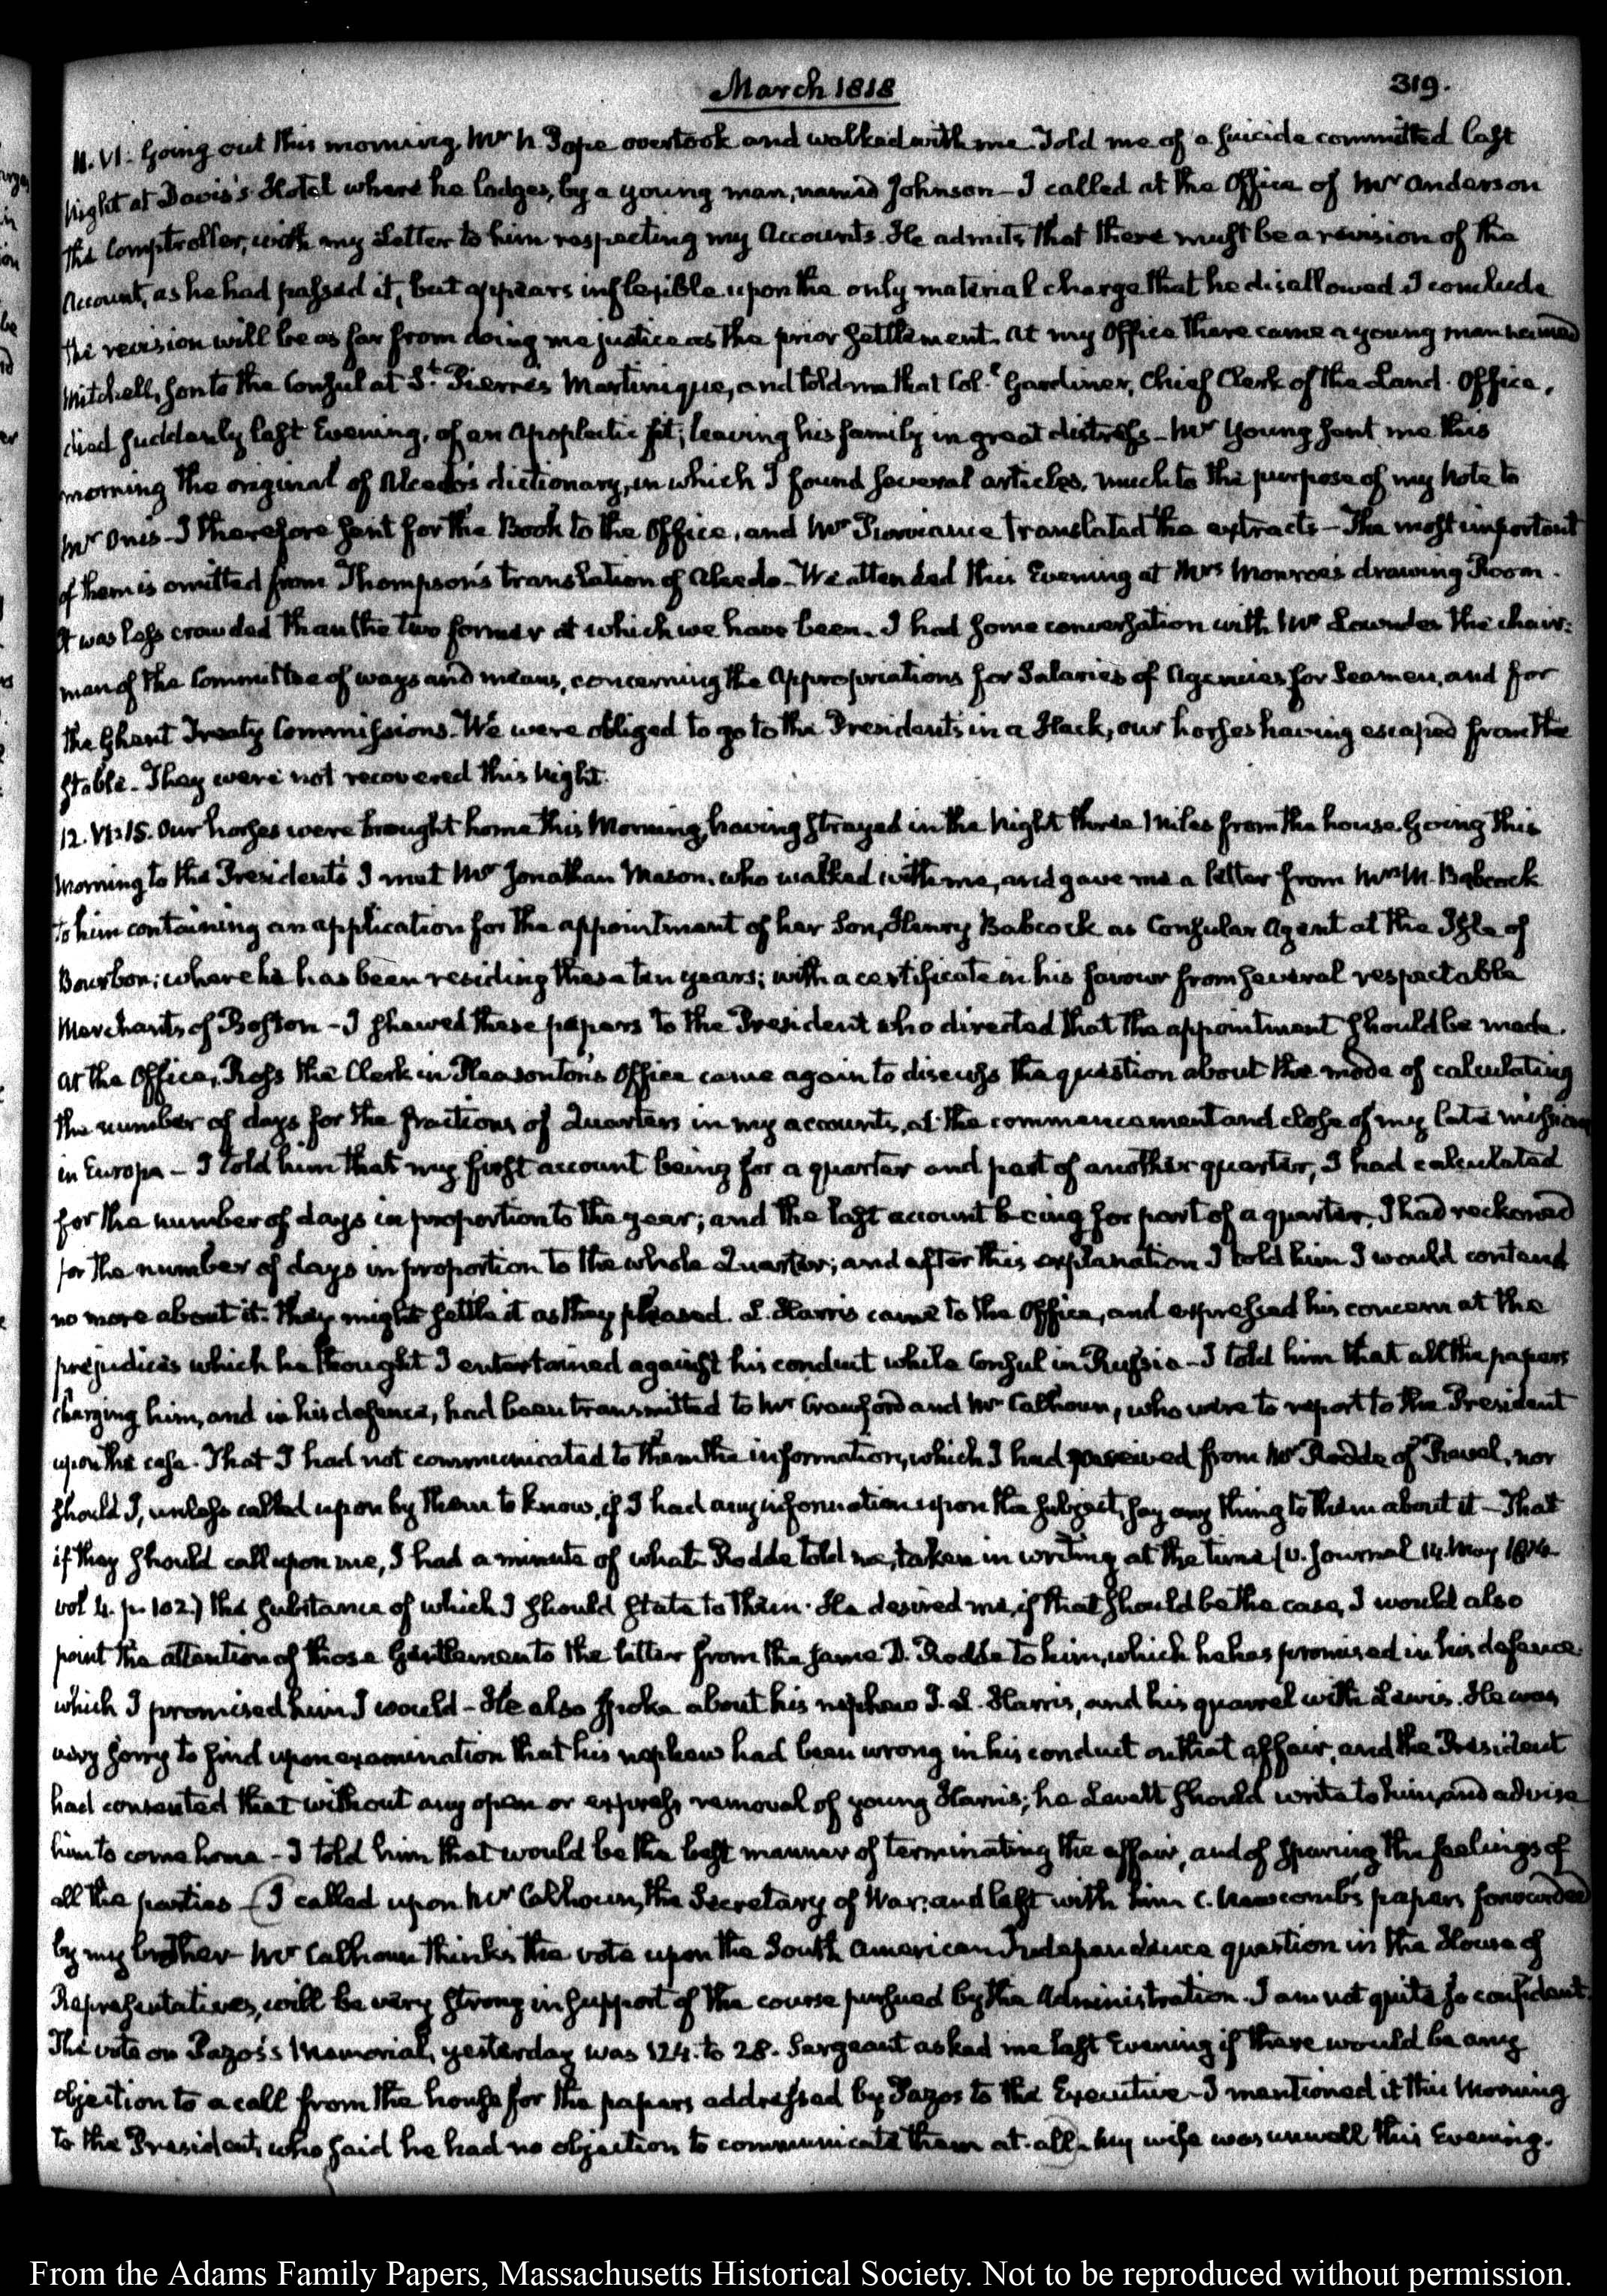 March 1818
319.
11. VI. Going out this morning, Mr. N. Pope overtook and walked with me. Told me of a suicide committed last
Night at Davis's Hotel where he lodges, by a young man, named Johnson — I called at the Office of Mr Anderson
the Comptroller, with my Letter to him respecting my Accounts. He admits that there must be a revision of the
Account, as he had passed it, but appears inflexible upon the only material charge that he disallowed I conclude
the revision will be as far from doing me justice as the prior settlement. At my Office there came a young man named
Mitchell, son to the Consul at St. Pierre's Martinique, and told me that Col. Gardiner, Chief Clerk of the Land Office,
died suddenly last Evening, of an Apoplectic fit; leaving his family in great distress — Mr Young sent me this
morning the original of Alcedo's dictionary, in which I found several articles, much to the purpose of my Note to
Mr Onis — I therefore sent for the Book to the Office, and Mr Purviance translated the extracts — The most important
of them is omitted from Thompson's translation of Alcedo — We attended this Evening at Mrs Monroe's drawing Room.
It was less crowded than the two former at which we have been. I had some conversation with Mr Lowndes the chair:
man of the Committee of ways and means, concerning the Appropriations for Salaries of Agencies for Seamen, and for
the Ghent Treaty Commissions. We were obliged to go to the President's in a Hack, our horses having escaped from the
stable. They were not recovered this Night.
12. VI:15. Our horses were brought home this Morning, having strayed in the Night three Miles from the house. Going this
Morning to the President's I met Mr Jonathan Mason, who walked with me, and gave me a letter from Mrs M. Babcock
to him containing an application for the appointment of her Son, Henry Babcock as Consular Agent at the Isle of
Bourbon; where he has been residing these ten years; with a certificate in his favour from several respectable
Merchants of Boston — I shewed these papers to the President who directed that the appointment should be made.
At the Office, Ross the Clerk in Pleasonton's Office came again to discuss the question about the mode of calculating
the number of days for the fractions of Quarters in my accounts, at the commencement and close of my late missions
in Europe — I told him that my first account being for a quarter and part of another quarter, I had calculated
for the number of days in proportion to the year; and the last account being for part of a quarter, I had reckoned
for the number of days in proportion to the whole Quarter; and after this explanation I told him I would contend
no more about it. They might settle it as they pleased. L. Harris came to the Office, and expressed his concern at the
prejudices which he thought I entertained against his conduct while Consul in Russia — I told him that all the papers
charging him, and in his defence, had been transmitted to Mr Crawford and Mr Calhoun, who were to report to the President
upon the case. That I had not communicated to them the information, which I had received from Mr Rodde of Reval, nor
should I, unless called upon by them to know, if I had any information upon the subject, say any thing to them about it — That
if they should call upon me, I had a minute of what Rodde told me, taken in writing at the time (v. Journal 14. May 1814
vol 4. p. 102.) the substance of which I should state to them. He desired me, if that should be the case, I would also
point the attention of those Gentlemen to the letter from the same D. Rodde to him, which he has promised in his defence.
which I promised him I would — He also spoke about his nephew J. L. Harris, and his quarrel with Lewis. He was
very sorry to find upon examination that his nephew had been wrong in his conduct on that affair, and the President
had consented that without any open or express removal of young Harris, he Levett should write to him, and advise
him to come home — I told him that would be the best manner of terminating the affair, and of sparing the feelings of
all the parties — (I called upon Mr Calhoun, the Secretary of War: and left with him C. Newcomb's papers forwarded
by my brother — Mr Calhoun thinks the vote upon the South American Independence question in the House of
Representatives, will be very strong in support of the course pursued by the Administration. I am not quite so confident.
The vote on Pazos's Memorial, yesterday was 124. to 28. Sergeant asked me last Evening if there would be any
objection to a call from the house for the papers addressed by Pazos to the Executive — I mentioned it this Morning
to the President, who said he had no objection to communicate them at all.) My wife was unwell this Evening.
From the Adams Family Papers, Massachusetts Historical Society. Not to be reproduced without permission.